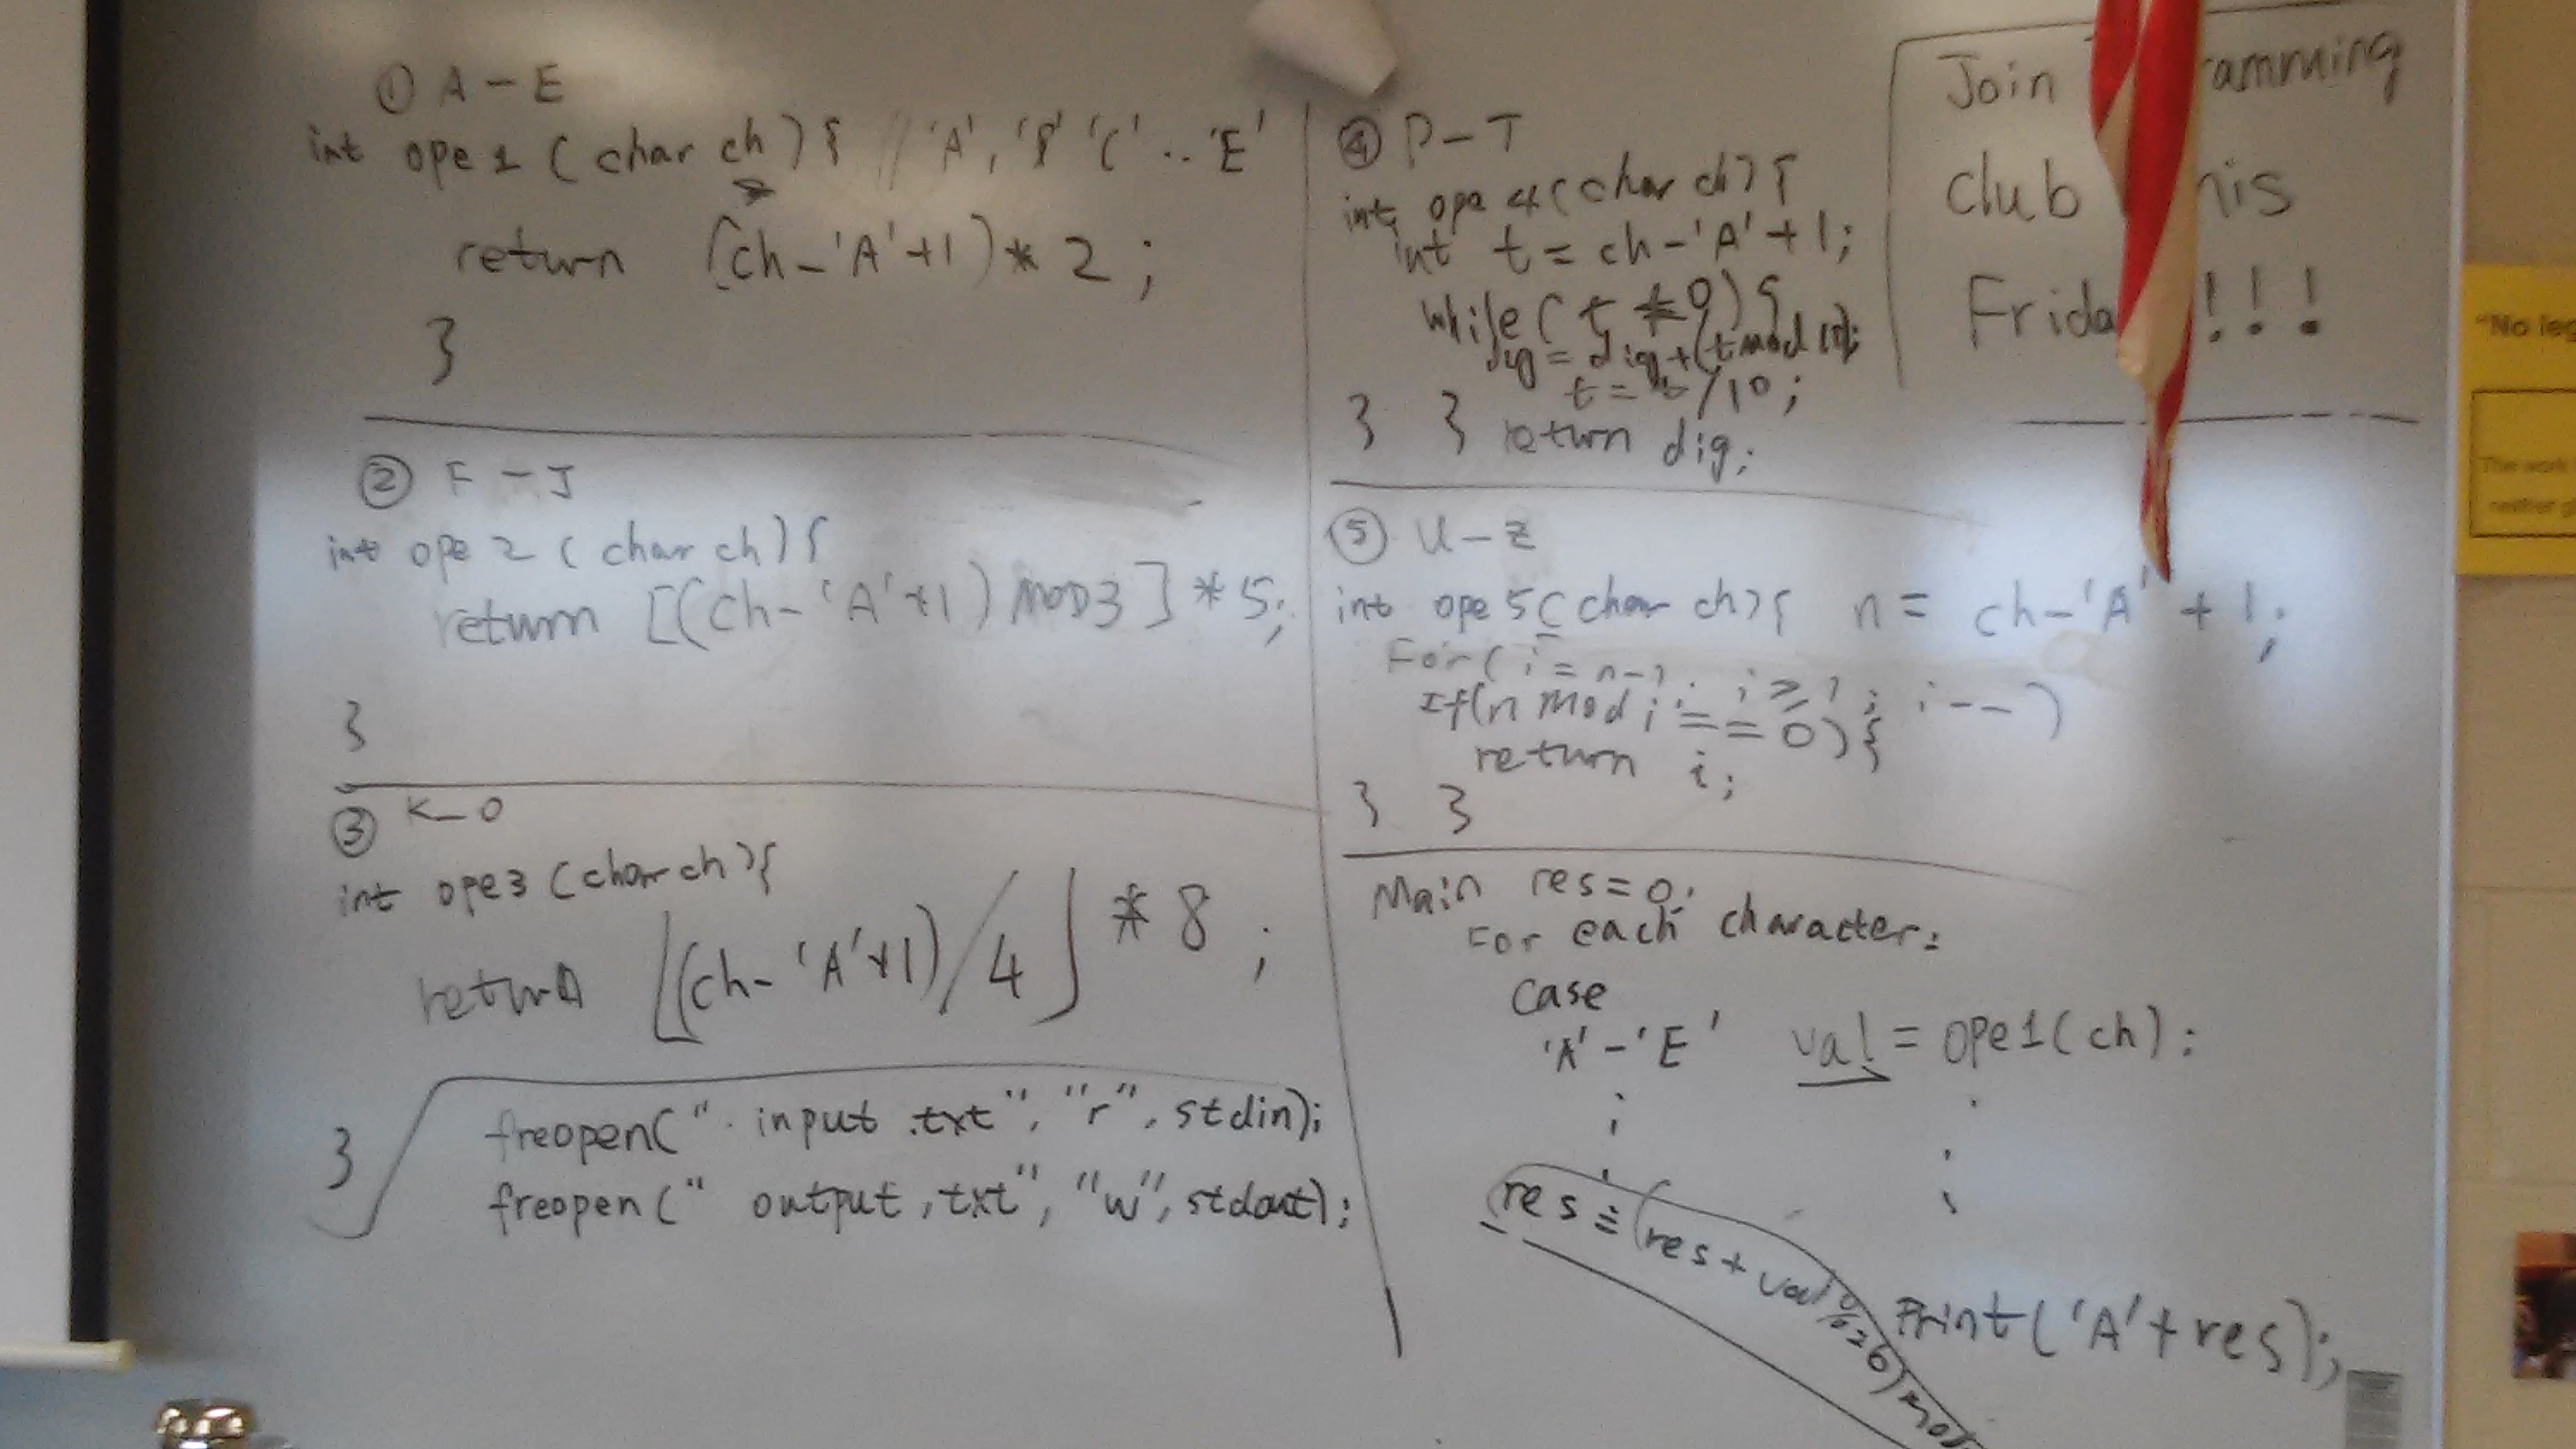 ① A - E
int ope1 (char ch) { // 'A', 'B' 'C' .. 'E'
return (ch-'A'+1) * 2 ;
}
② F - J
int ope2 (char ch) {
return [(ch-'A'+1) MOD 3] * 5;
}
③ K - O
int ope3 (char ch) {
return ⌊(ch-'A'+1)/4⌋ * 8 ;
}
freopen("input.txt", "r", stdin);
freopen("output.txt", "w", stdout);
④ P - T
int ope4 (char ch) {
int t = ch-'A'+1;
while (t ≠ 0) {
dig = dig + (t mod 10);
t = t/10;
} } return dig;
⑤ U - Z
int ope5 (char ch) { n = ch-'A' + 1;
For( i = n-1; i ≥ 1 ; i -- )
If(n mod i == 0) {
return i;
} }
Main res = 0;
For each character:
case
'A' - 'E' val = ope1(ch);
res = (res + val%26) mod
Print('A' + res);
Join amming
club his
Frida !!!
"No leg
The work
neither